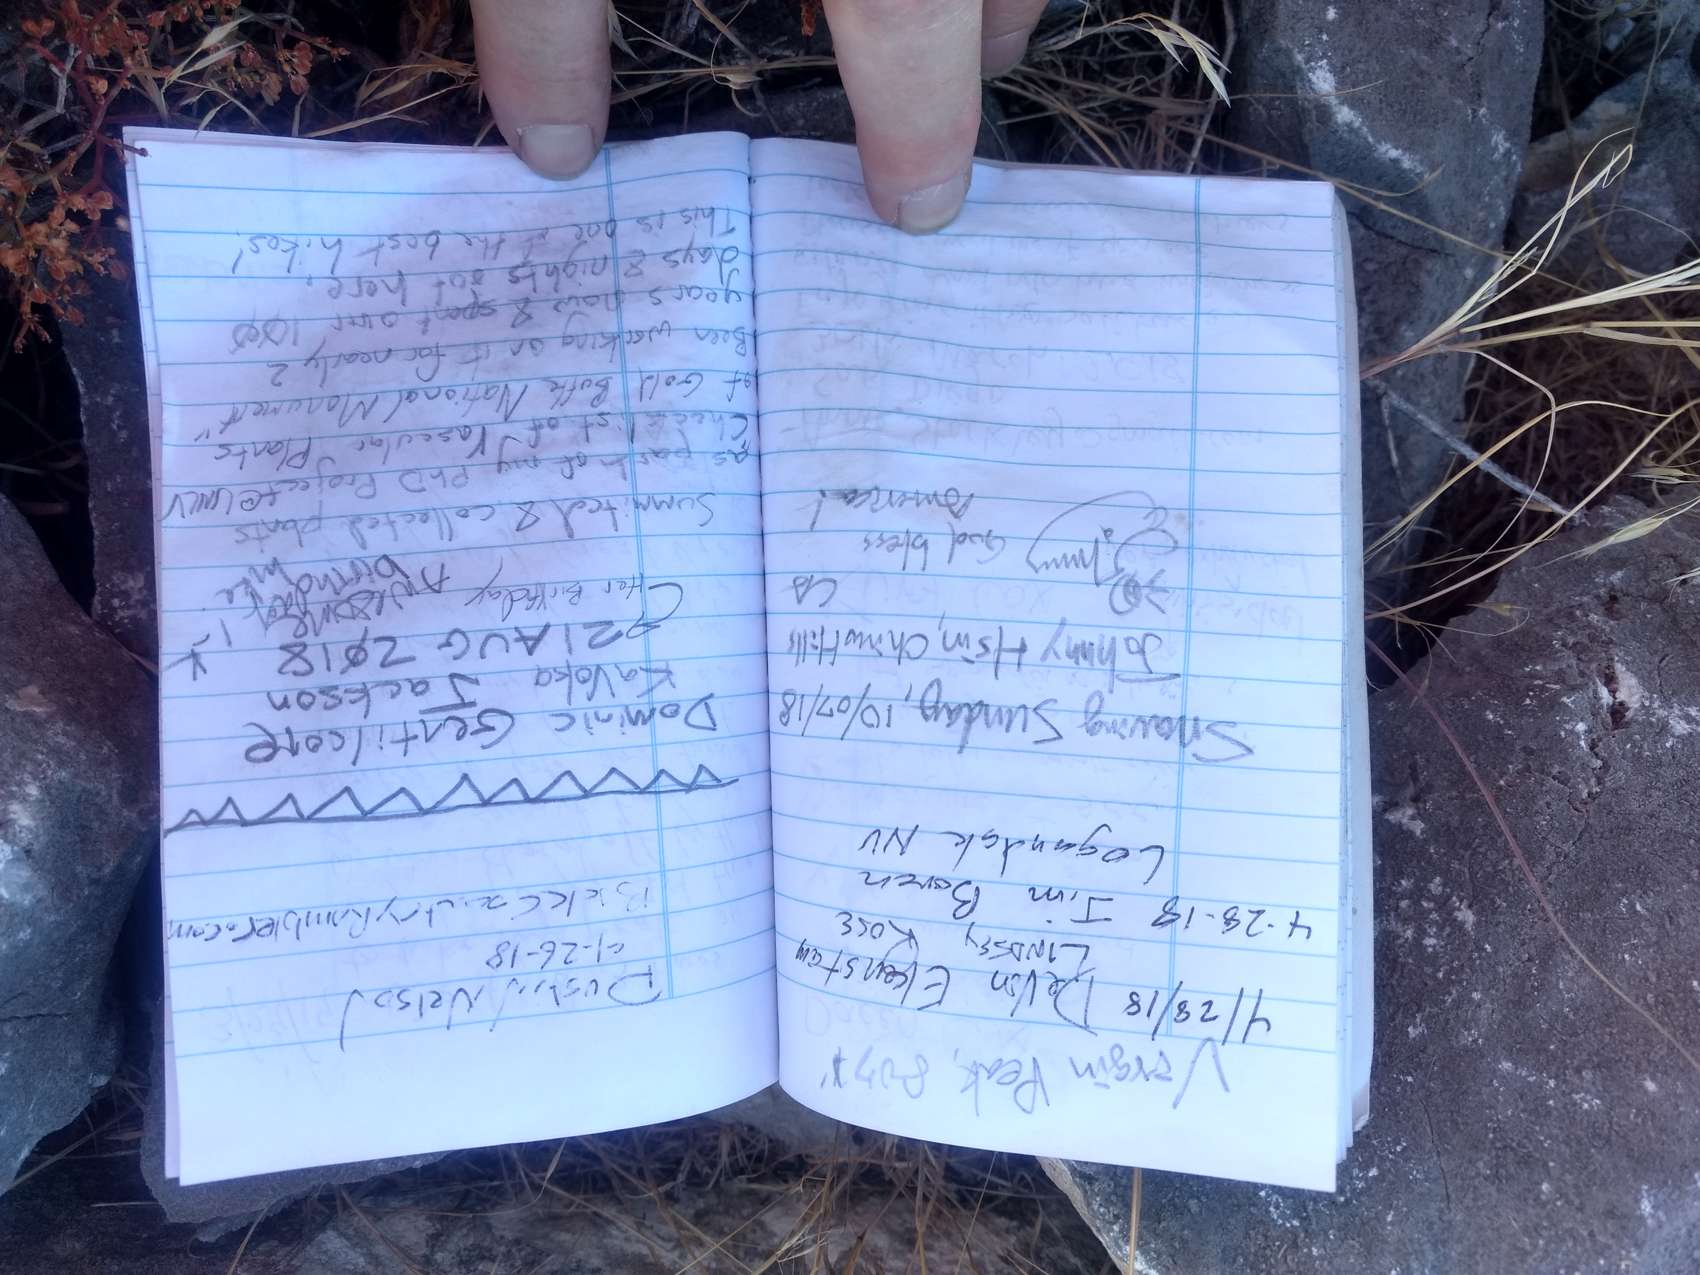 Virgin Peak, 8071'
4/28/18 Devon Ekenstam
LINDSEY ROSE
4-28-18 Jim Boren
Logandale NV
Smaving Sunday, 10/07/18
Johnny Hsin, Chino Hills
CA
Johnny God bless
America!
Dustin Nelson
4-26-18
BackCountryRambler.com
Dominic Gentilcore
Kavoka Jackson
21 AUG 2018
(Her Birthday
A
birthday
hike
Summited & collected plants
as part of my PhD Project@UNLV
Checklist of Vascular Plants
of Gold Butte National Monument"
Been working on it for nearly 2
years now & spent over 100
days & nights out here.
This is one of the best hikes!